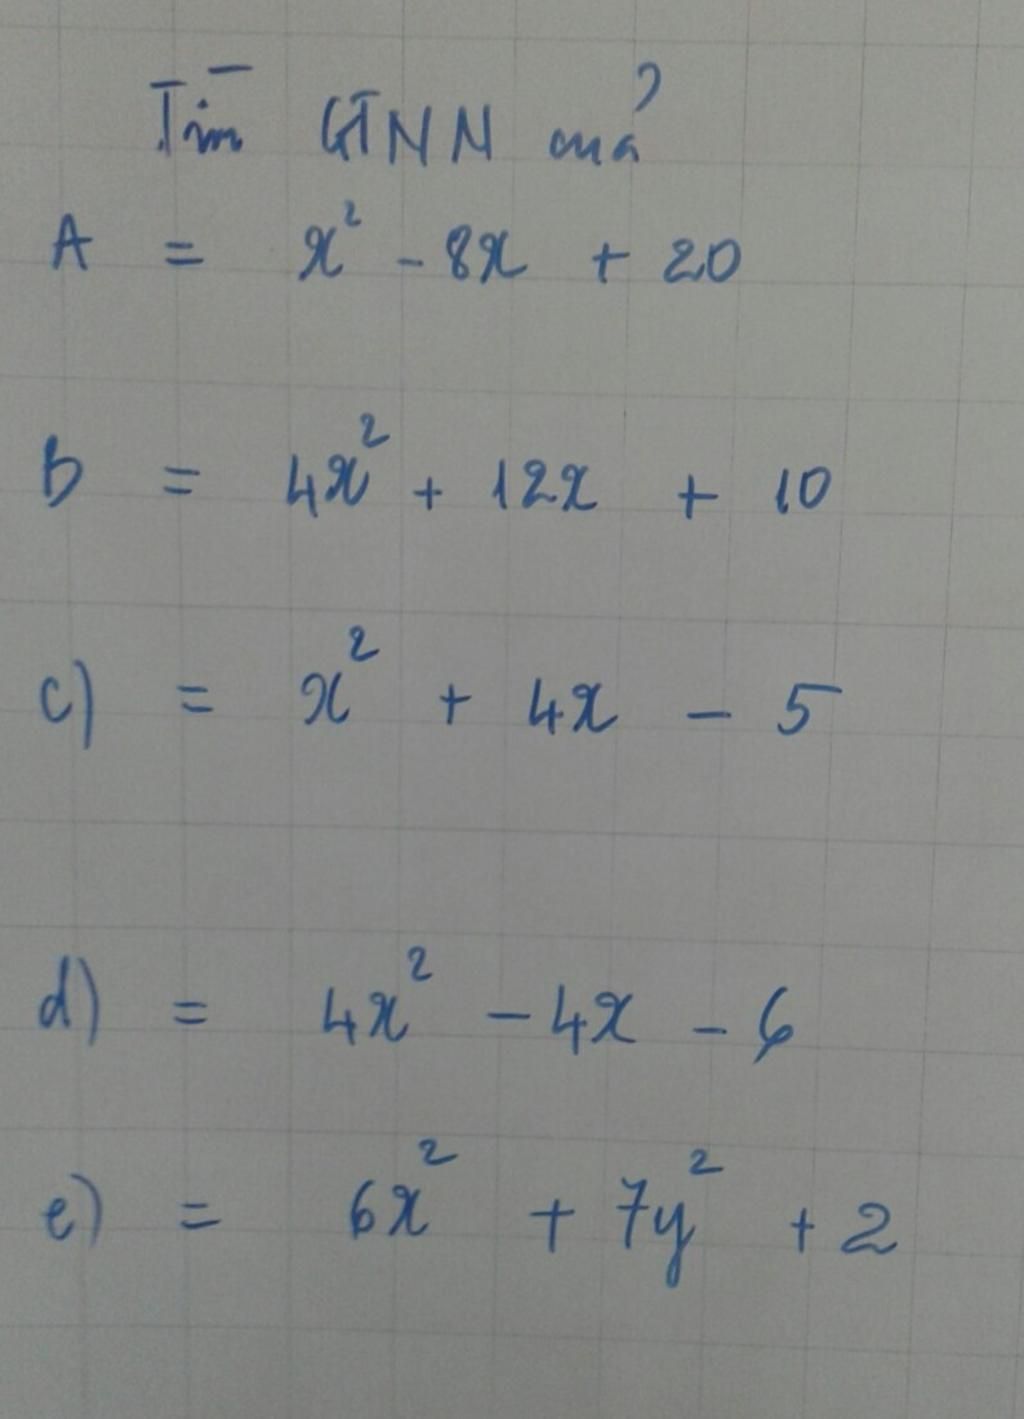 Tìm GTNN của
A = x² - 8x + 20
B = 4x² + 12x + 10
c) = x² + 4x - 5
d) = 4x² - 4x - 6
e) = 6x² + 7y² + 2